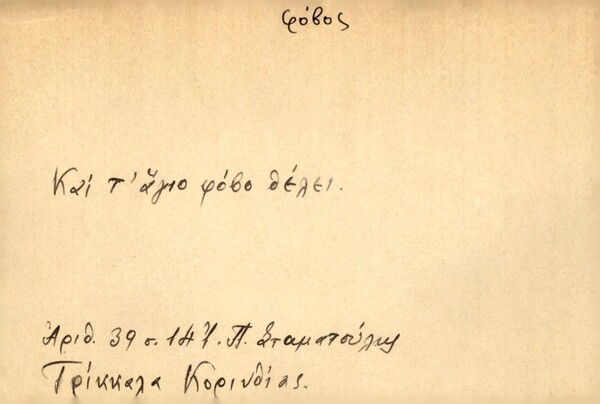 φόβος
Καί τ' ἅγιο φόβο θέλει.
Ἀριθ. 39 σ. Π. Σταματούλης
Τρίκκαλα Κορινθίας.